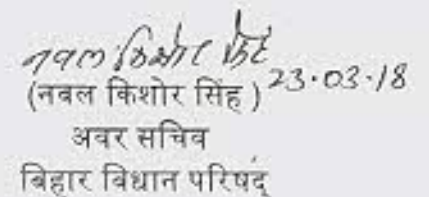 नवल किशोर सिंह
(नवल किशोर सिंह) 23.03.18
अवर सचिव
बिहार विधान परिषद्